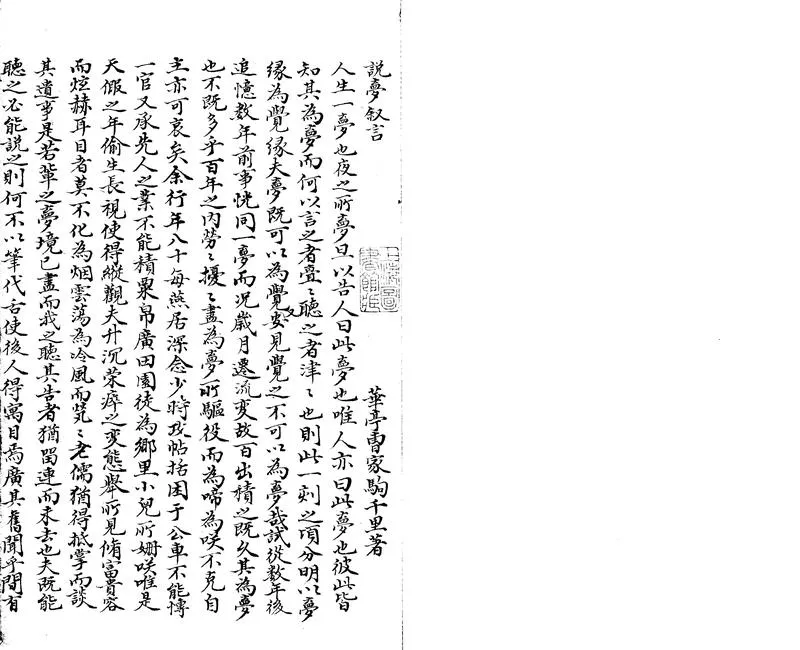 說夢叙言
華亭曹家駒千里著
人生一夢也夜之所夢旦以告人曰此夢也唯人亦曰此夢也彼此皆
知其為夢而何以言之者亹〻聽之者津〻也則此一刻之頃分明以夢
緣為覺緣夫夢既可以為覺安見覺之不可以為夢哉試從数年後
追憶数年前事恍同一夢而况歲月遷流变故百出積之既久其為夢
也不既多乎百年之内勞〻擾〻盡為夢所驅役而為啼為咲不克自
主亦可哀矣余行年八十每燕居深念少時攻帖括困于公車不能博
一官又承先人之業不能積粟帛廣田園徒為鄉里小兒所姗咲唯是
天假之年偷生長視使得縱觀夫升沉荣瘁之变態舉所見脩富貴容
而炫赫耳目者莫不化為烟雲蕩為冷風而煢〻老儒猶得抵掌而談
其遺事是若輩之夢境已盡而我之聽其告者猶畱連而未去也夫既能
聽之必能說之則何不以筆代舌使後人得寓目焉廣其舊聞乎間有